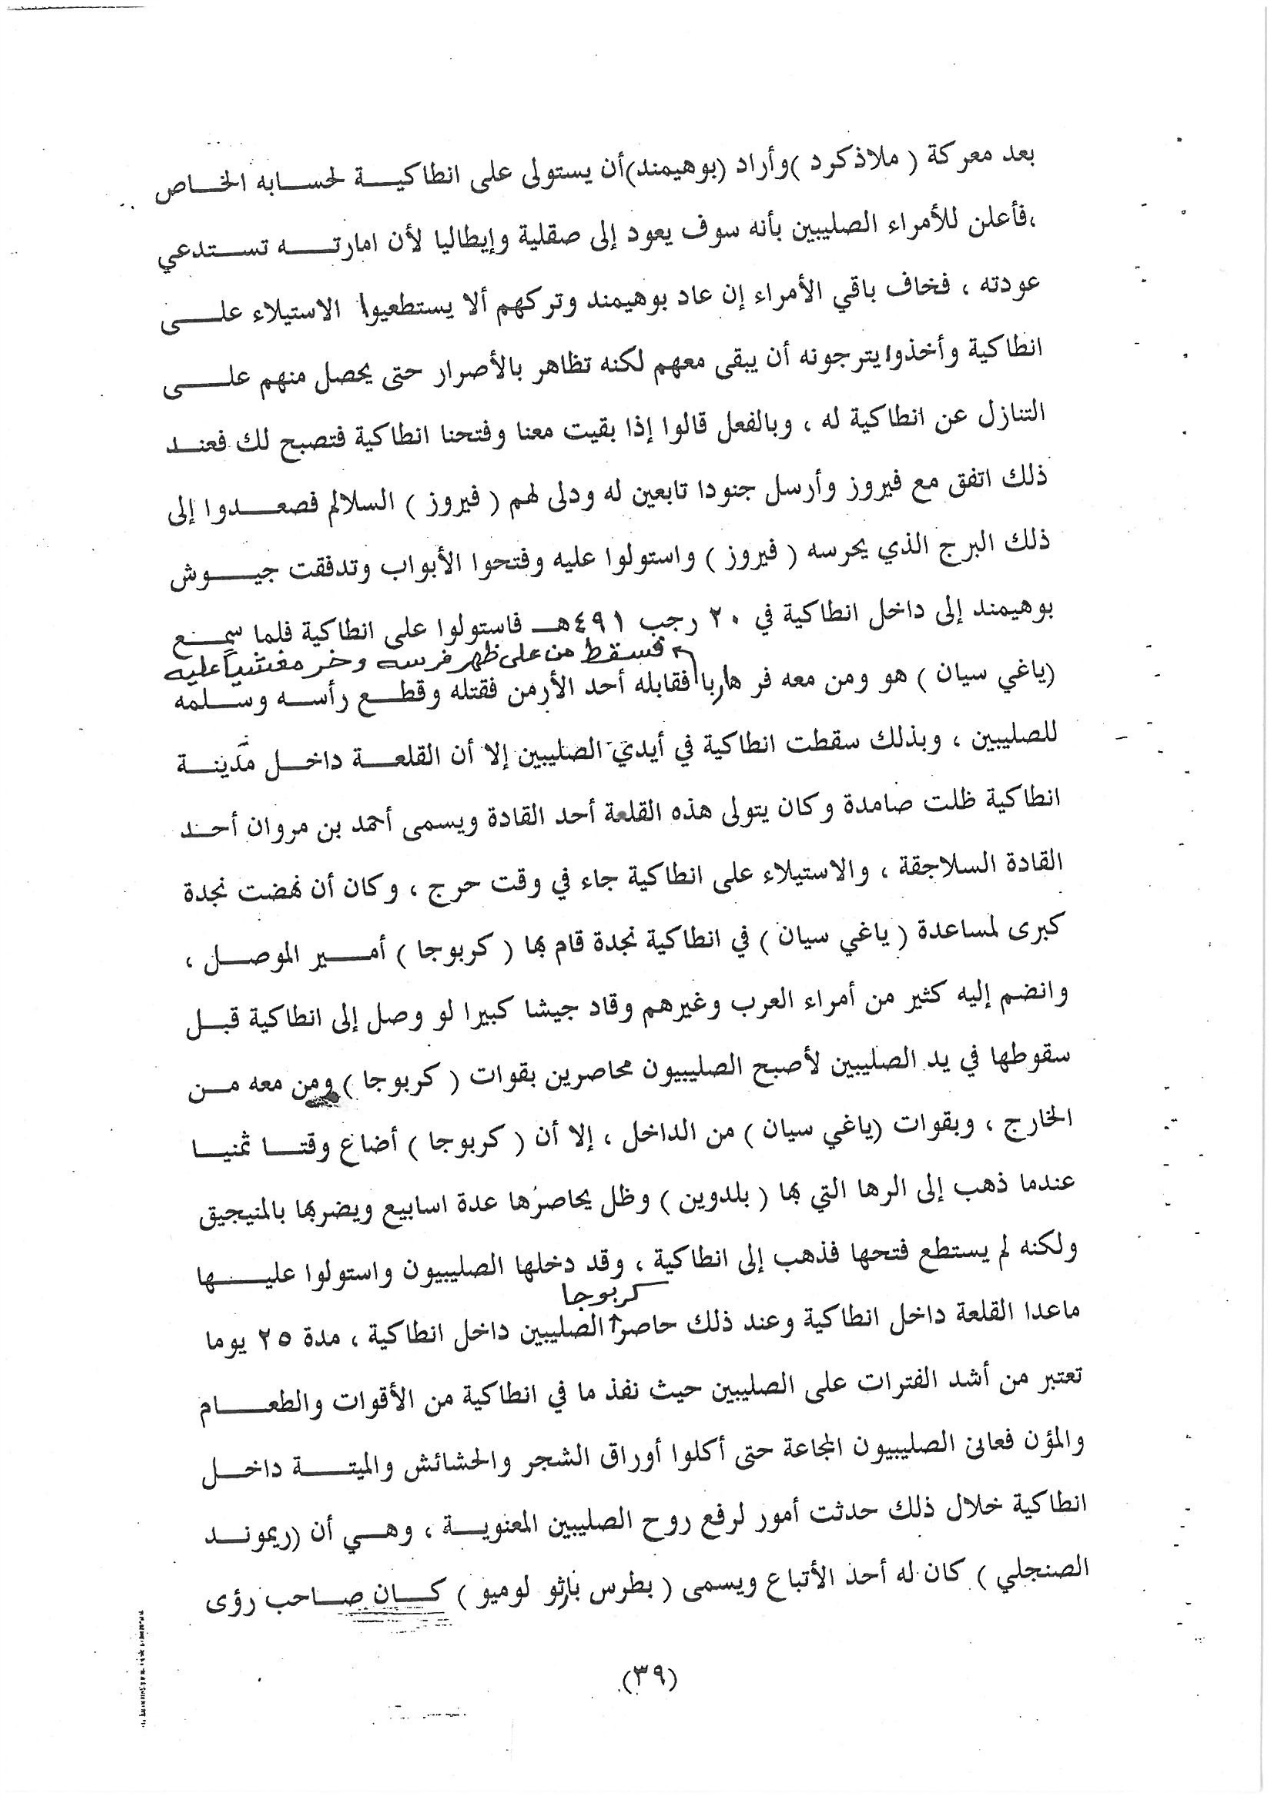 بعد معركة ( ملاذكرد )وأراد (بوهيمند)أن يستولى على انطاكيـــة لحسـابه الخـاص
،فأعلن للأمراء الصليبين بأنه سوف يعود إلى صقلية وإيطاليا لأن امارتـــه تستدعي
عودته ، فخاف باقي الأمراء إن عاد بوهيمند وتركهم ألا يستطعيوا الاستيلاء علـــى
انطاكية وأخذوا يترجونه أن يبقى معهم لكنه تظاهر بالأصرار حتى يحصل منهم علـــى
التنازل عن انطاكية له ، وبالفعل قالوا إذا بقيت معنا وفتحنا انطاكية فتصبح لك فعنـد
ذلك اتفق مع فيروز وأرسل جنودا تابعين له ودلى لهم ( فيروز ) السلالم فصعـــدوا إلى
ذلك البرج الذي يحرسه ( فيروز ) واستولوا عليه وفتحوا الأبواب وتدفقت جيـــوش
بوهيمند إلى داخل انطاكية في ٢٠ رجب ٤٩١هـ فاستولوا على انطاكية فلما سمـع
فسقط من على ظهر فرسه وخر مغشياً عليه
(ياغي سيان ) هو ومن معه فر هاربا فقابله أحد الأرمن فقتله وقطـع رأسـه وسـلمه
للصليبين ، وبذلك سقطت انطاكية في أيدي الصليبين إلا أن القلعـة داخـل مدينـة
انطاكية ظلت صامدة وكان يتولى هذه القلعة أحد القادة ويسمى أحمد بن مروان أحـد
القادة السلاجقة ، والاستيلاء على انطاكية جاء في وقت حرج ، وكان أن نهضت نجدة
كبرى لمساعدة ( ياغي سيان ) في انطاكية نجدة قام بها ( كربوجا ) أمـــير الموصـل ،
وانضم إليه كثير من أمراء العرب وغيرهم وقاد جيشا كبيرا لو وصل إلى انطاكية قبـل
سقوطها في يد الصليبين لأصبح الصليبيون محاصرين بقوات ( كربوجا ) ومن معه مـن
الخارج ، وبقوات (ياغي سيان ) من الداخل ، إلا أن ( كربوجا ) أضاع وقتـا ثمنيـا
عندما ذهب إلى الرها التي بها ( بلدوين ) وظل يحاصرها عدة اسابيع ويضربها بالمنيجيق
ولكنه لم يستطع فتحها فذهب إلى انطاكية ، وقد دخلها الصليبيون واستولوا عليـــها
كربوجا
ماعدا القلعة داخل انطاكية وعند ذلك حاصر الصليبين داخل انطاكية ، مدة ٢٥ يوما
تعتبر من أشد الفترات على الصليبين حيث نفذ ما في انطاكية من الأقوات والطعـــام
والمؤن فعانى الصليبيون المجاعة حتى أكلوا أوراق الشجر والحشائش والميتـــة داخـل
انطاكية خلال ذلك حدثت أمور لرفع روح الصليبين المعنويـة ، وهـي أن (ريمونـد
الصنجلي ) كان له أحد الأتباع ويسمى ( بطرس بارثو لوميو ) كـــان صـاحب رؤى
(٣٩)